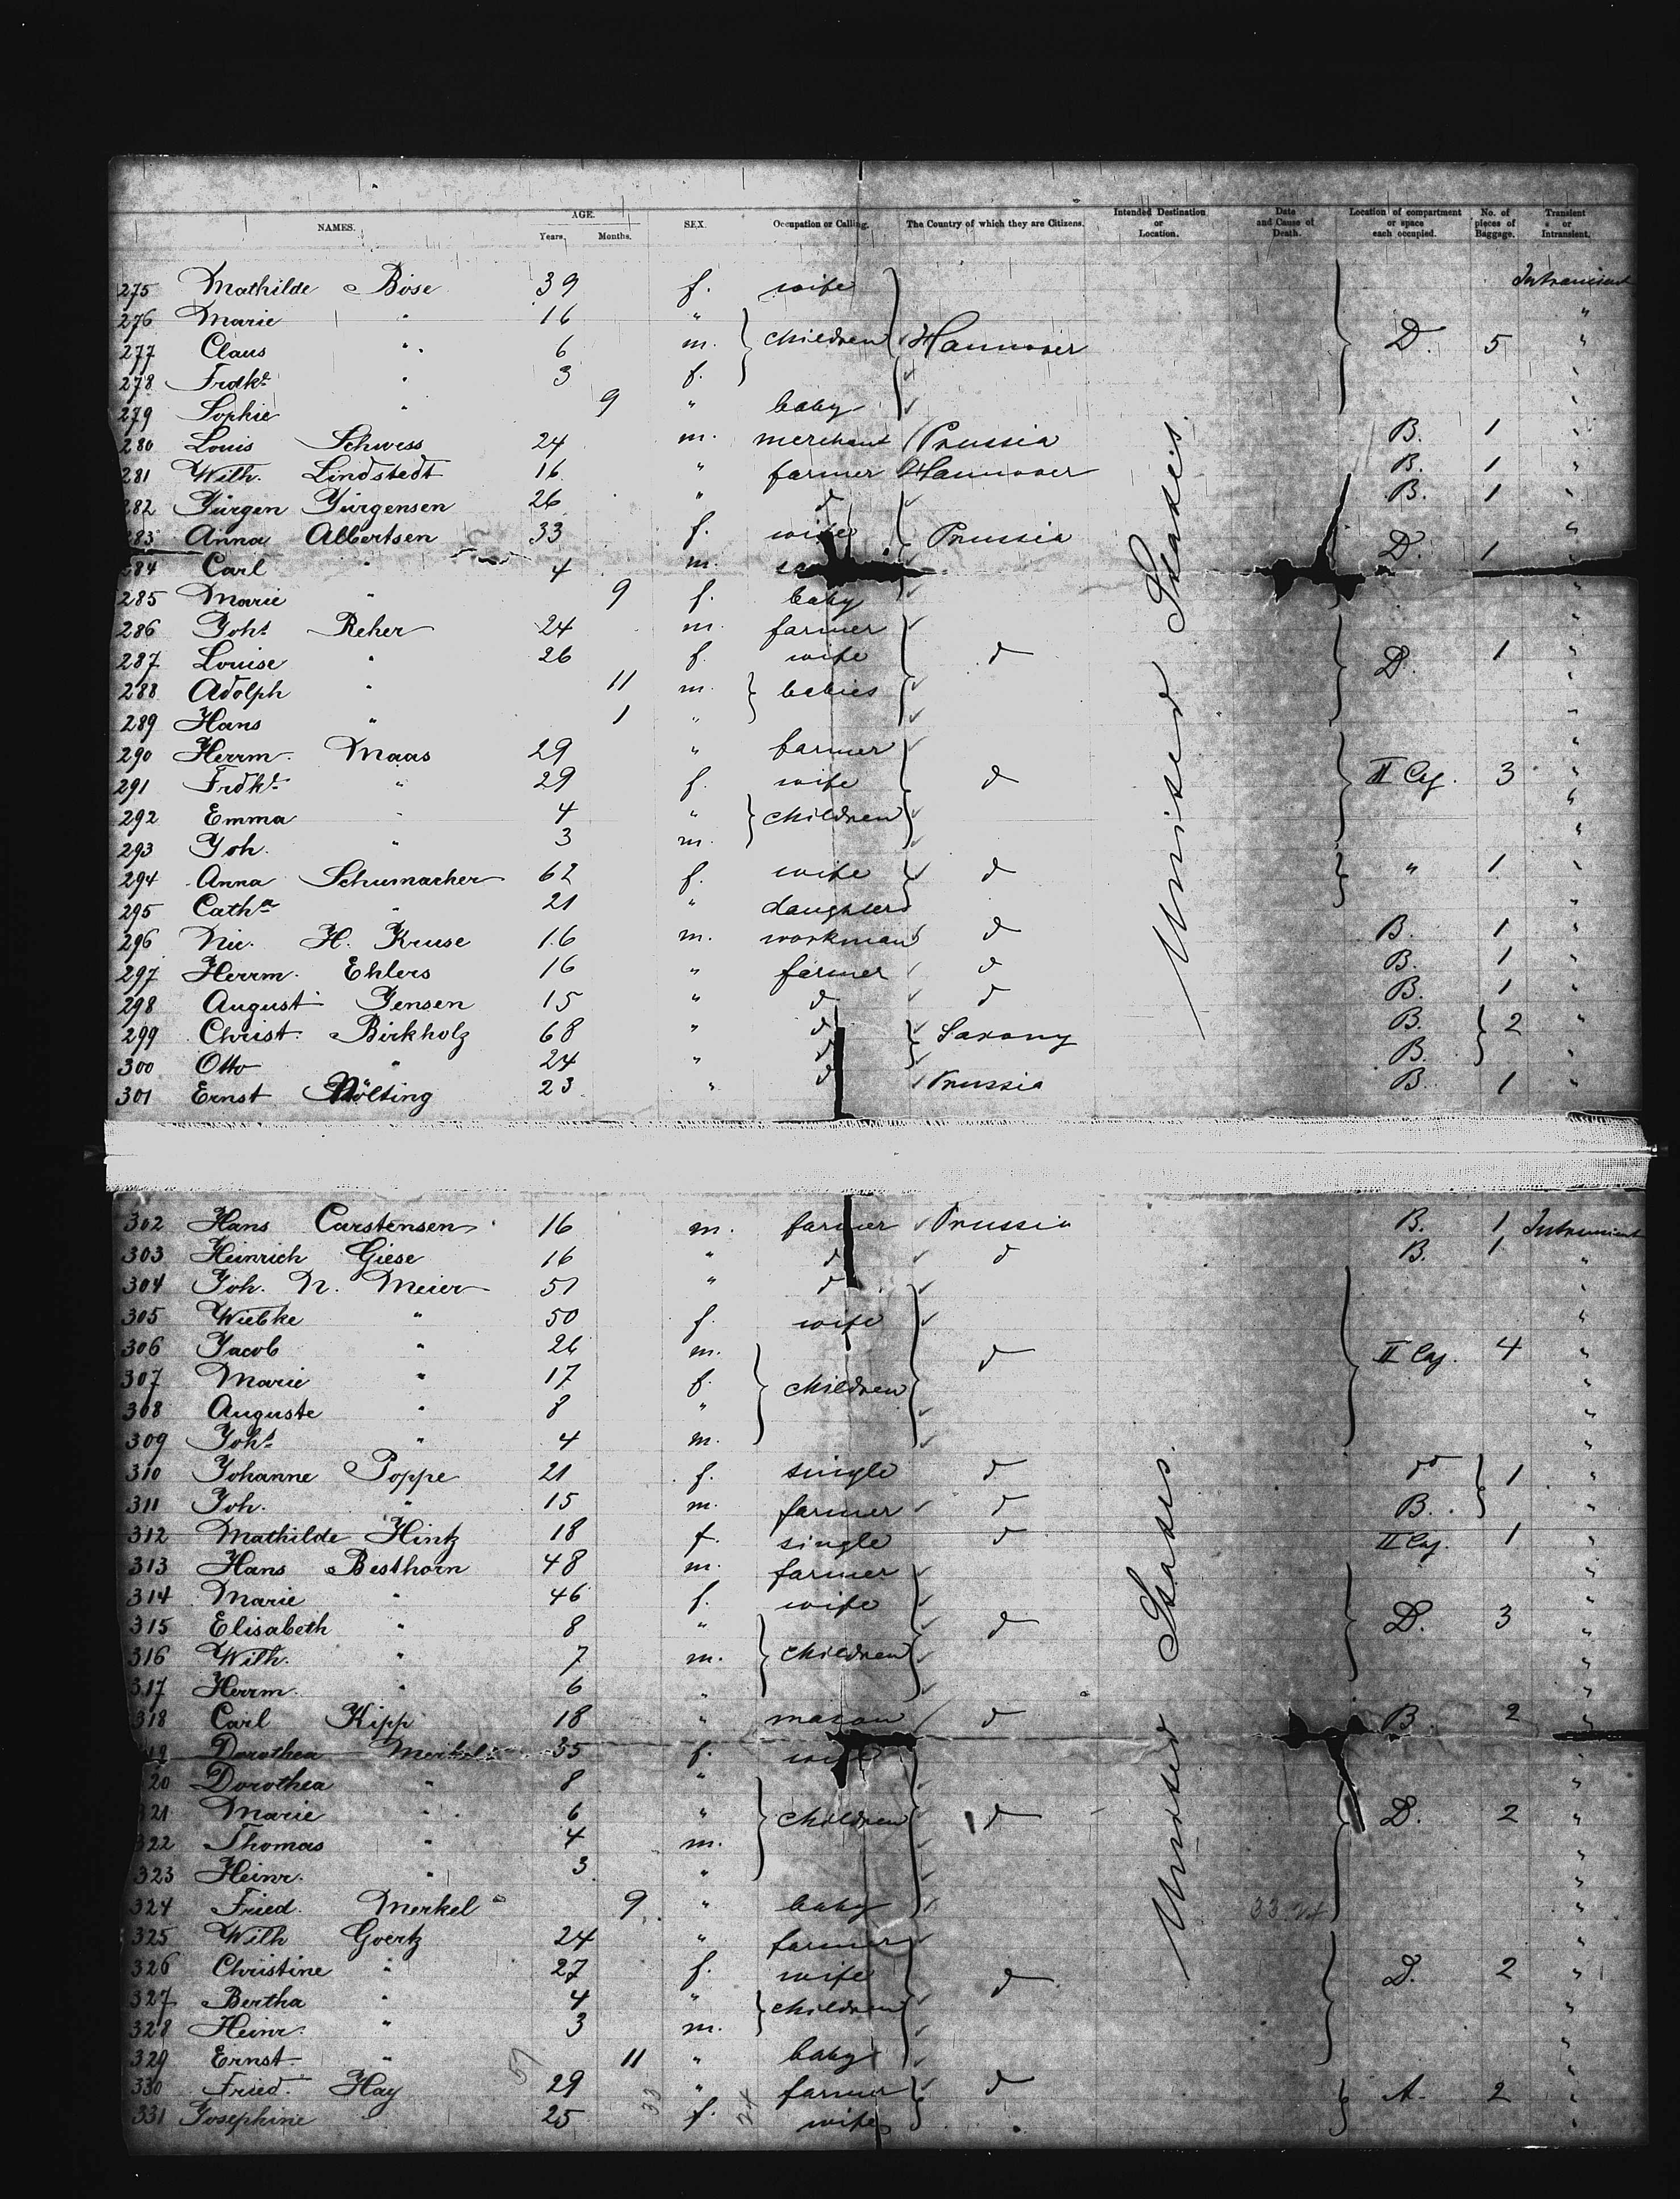 NAMES. AGE. Years. Months. SEX. Occupation or Calling. The Country of which they are Citizens. Intended Destination or Location. Date and Cause of Death. Location of compartment or space each occupied. No. of pieces of Baggage. Transient or Intransient.
275 Mathilde Böse 39 f. wife Intransient
276 Marie " 16 " children Hannover D. 5 "
277 Claus " 6 m. "
278 Frdke " 3 f. "
279 Sophie " 9 " baby "
280 Louis Schwess 24 m. merchant Prussia B. 1 "
281 Wilh. Lindstedt 16 " farmer Hannover B. 1 "
282 Jürgen Jürgensen 26 " d B. 1 "
283 Anna Albertsen 33 f. wife Prussia D. 1 "
284 Carl " 4 m. "
285 Marie " 9 f. baby "
286 Johs Reher 24 m. farmer "
287 Louise " 26 f. wife d D. 1 "
288 Adolph " 11 m. babies "
289 Hans " 1 " "
290 Herrm. Maas 29 " farmer "
291 Frdke " 29 f. wife d II Caj. 3 "
292 Emma " 4 " children "
293 Joh. " 3 m. "
294 Anna Schumacher 62 f. wife d " 1 "
295 Catha " 21 " daughter "
296 Nic. H. Kruse 16 m. workman d B. 1 "
297 Herrm. Ehlers 16 " farmer d B. 1 "
298 August Jensen 15 " d d B. 1 "
299 Christ. Birkholz 68 " d Saxony B. 2 "
300 Otto " 24 " d B. "
301 Ernst Nölting 23 " d Prussia B. 1 "
United States.
302 Hans Carstensen 16 m. farmer Prussia B. 1 Intransient
303 Heinrich Giese 16 " d d B. 1 "
304 Joh. N. Meier 51 " d "
305 Wiebke " 50 f. wife "
306 Jacob " 26 m. children d II Caj. 4 "
307 Marie " 17 f. "
308 Auguste " 8 " "
309 Johs " 4 m. "
310 Johanne Poppe 21 f. single d do 1 "
311 Joh. " 15 m. farmer d B. "
312 Mathilde Hintz 18 f. single d II Caj. 1 "
313 Hans Besthorn 48 m. farmer "
314 Marie " 46 f. wife "
315 Elisabeth " 8 " children d D. 3 "
316 Wilh. " 7 m. "
317 Herrm. " 6 " "
318 Carl Kipp 18 " mason d B. 2 "
19 Dorothea Merkel 35 f. wife "
20 Dorothea " 8 " "
321 Marie " 6 " children d D. 2 "
322 Thomas " 4 m. "
323 Heinr. " 3 " "
324 Fried. Merkel 9 " baby 33 24 "
325 Wilh Goertz 24 " farmer "
326 Christine " 27 f. wife d D. 2 "
327 Bertha " 4 " children "
328 Heinr. " 3 m. "
329 Ernst " 11 " baby "
330 Fried. Hay 29 " farmer d A. 2 "
331 Josephine 25 f. wife "
United States.